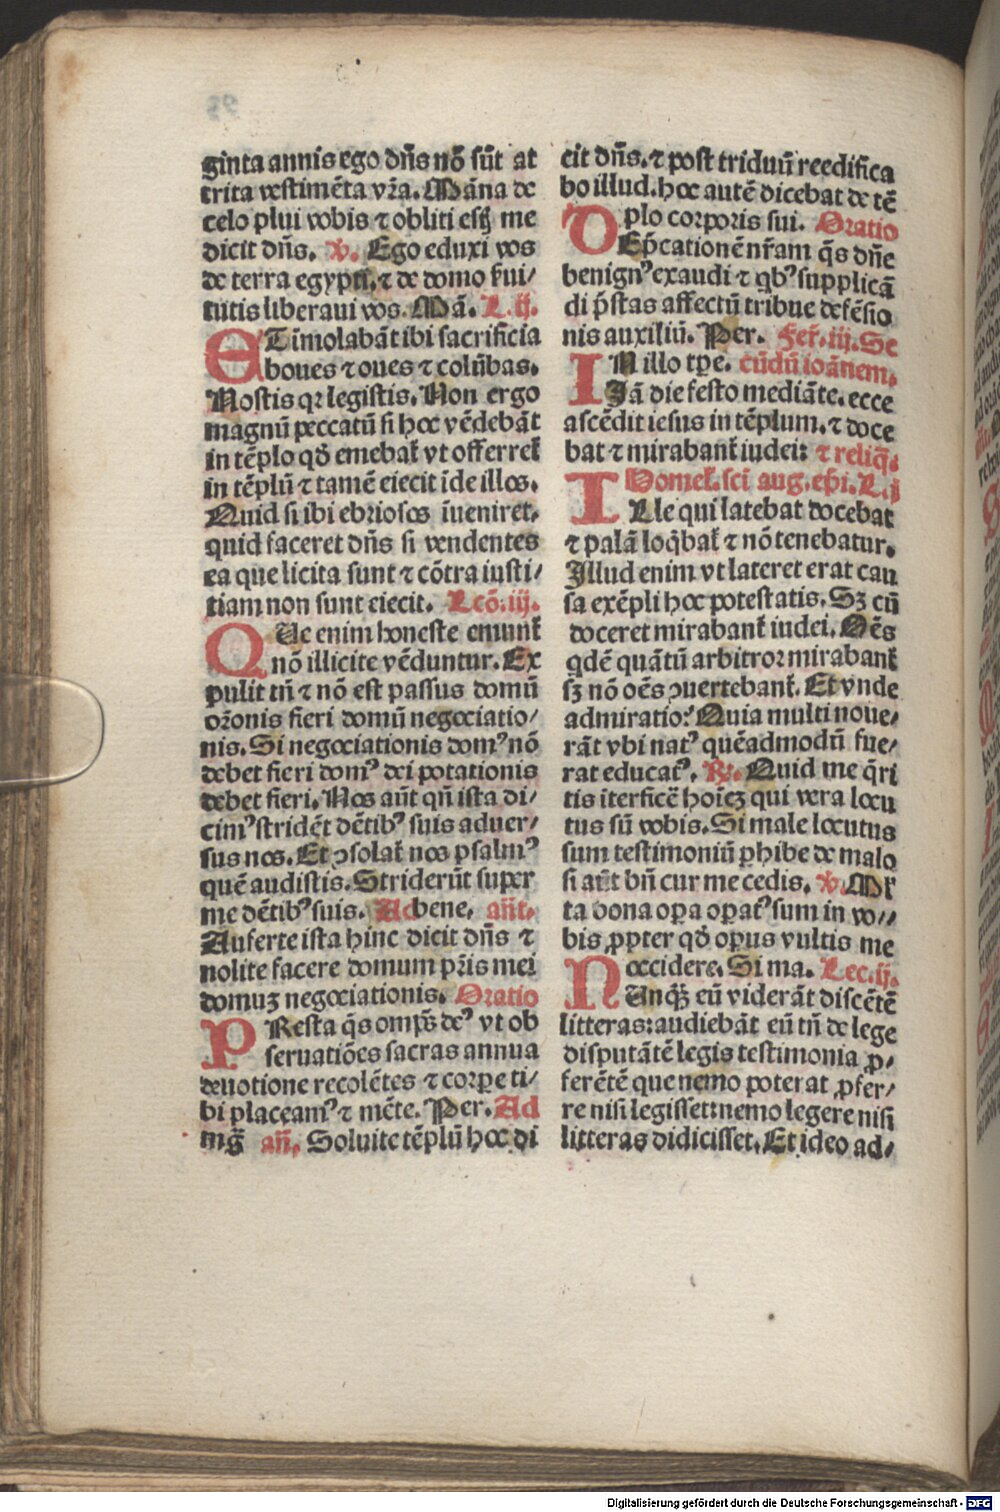 ginta annis ego dn̄s nō sūt at
trita vestimēta vr̄a. Māna de
celo plui vobis ⁊ obliti estꝭ me
dicit dn̄s. ℣. Ego eduxi vos
de terra egypti. ⁊ de domo ẜui/
tutis liberaui vos. Mā. L. ij.
ET īmolabāt ibi sacrificia
boues ⁊ oues ⁊ colūbas.
Nostis qꝛ legistis. Non ergo
magnū peccatū si hoc vēdebāt
in tēplo qđ emebat᷑ vt offerret᷑
in tēplū ⁊ tamē eiecit īde illos.
Quid si ibi ebriosos īueniret.
quid faceret dn̄s si vendentes
ea que licita sunt ⁊ cōtra iusti/
tiam non sunt eiecit. Lcō. iij.
QUe enim honeste emunt᷑
nō illicite vēduntur. Ex
pulit tn̄ ⁊ nō est passus domū
or̄onis fieri domū negociatio/
nis. Si negociationis domꝰ nō
debet fieri domꝰ dei potationis
debet fieri. Nos aūt qn̄ ista di/
cimꝰ stridēt dētibꝰ suis aduer/
sus nos. Et ꝯsolat᷑ nos psalmꝰ
quē audistis. Striderūt super
me dētibꝰ suis. Ad bene. an̄t.
Auferte ista hinc dicit dn̄s ⁊
nolite facere domum pr̄is mei
domuꝫ negociationis. Oratio
PResta q̄s omp̄s deꝰ vt ob
seruatiōes sacras annua
deuotione recolētes ⁊ corꝑe ti/
bi placeamꝰ ⁊ mēte. Per. Ad
mg̅ an̄. Soluite tēplū hoc di
cit dn̄s. ⁊ post triduū reedifica
bo illud. hoc autē dicebat de tē
plo corporis sui. Oratio
DEp̄cationē nr̄am q̄s dn̄e
benignꝰ exaudi ⁊ qbꝰ supplicā
di p̄stas affectū tribue defēsio
nis auxiliū. Per. Fer̄. iij. Se
IN illo tꝑe. cūdū ioānem.
Jā die festo mediāte. ecce
ascēdit iesus in tēplum. ⁊ doce
bat ⁊ mirabant᷑ iudei: ⁊ reliq̄.
Homel᷑. sci aug. ep̄i. L. j
ILle qui latebat docebat
⁊ palā loq̄bat᷑ ⁊ nō tenebatur.
Illud enim vt lateret erat cau
sa exēpli hoc potestatis. Sꝫ cū
doceret mirabant᷑ iudei. Oēs
qdē quātū arbitror mirabant᷑
sꝫ nō oēs ꝯuertebant᷑. Et vnde
admiratio? Quia multi noue/
rāt vbi natꝰ quēadmodū fue/
rat educatꝰ. ℟. Quid me q̄ri
tis īterficē hoīeꝫ qui vera locu
tus sū vobis. Si male locutus
sum testimoniū ꝑhibe de malo
si aūt bn̄ cur me cedis. ℣. Ml᷑
ta bona oꝑa oꝑatꝰ sum in vo//
bis ꝓpter qđ opus vultis me
occidere. Si ma. Lec. ij.
NUnq̄ꝫ eū viderāt discētē
litteras: audiebāt eū tn̄ de lege
disputātē legis testimonia ꝓ/
ferētē que nemo poterat ꝓfer/
re nisi legisset: nemo legere nisi
litteras didicisset. Et ideo ad/
Digitalisierung gefördert durch die Deutsche Forschungsgemeinschaft - DFG